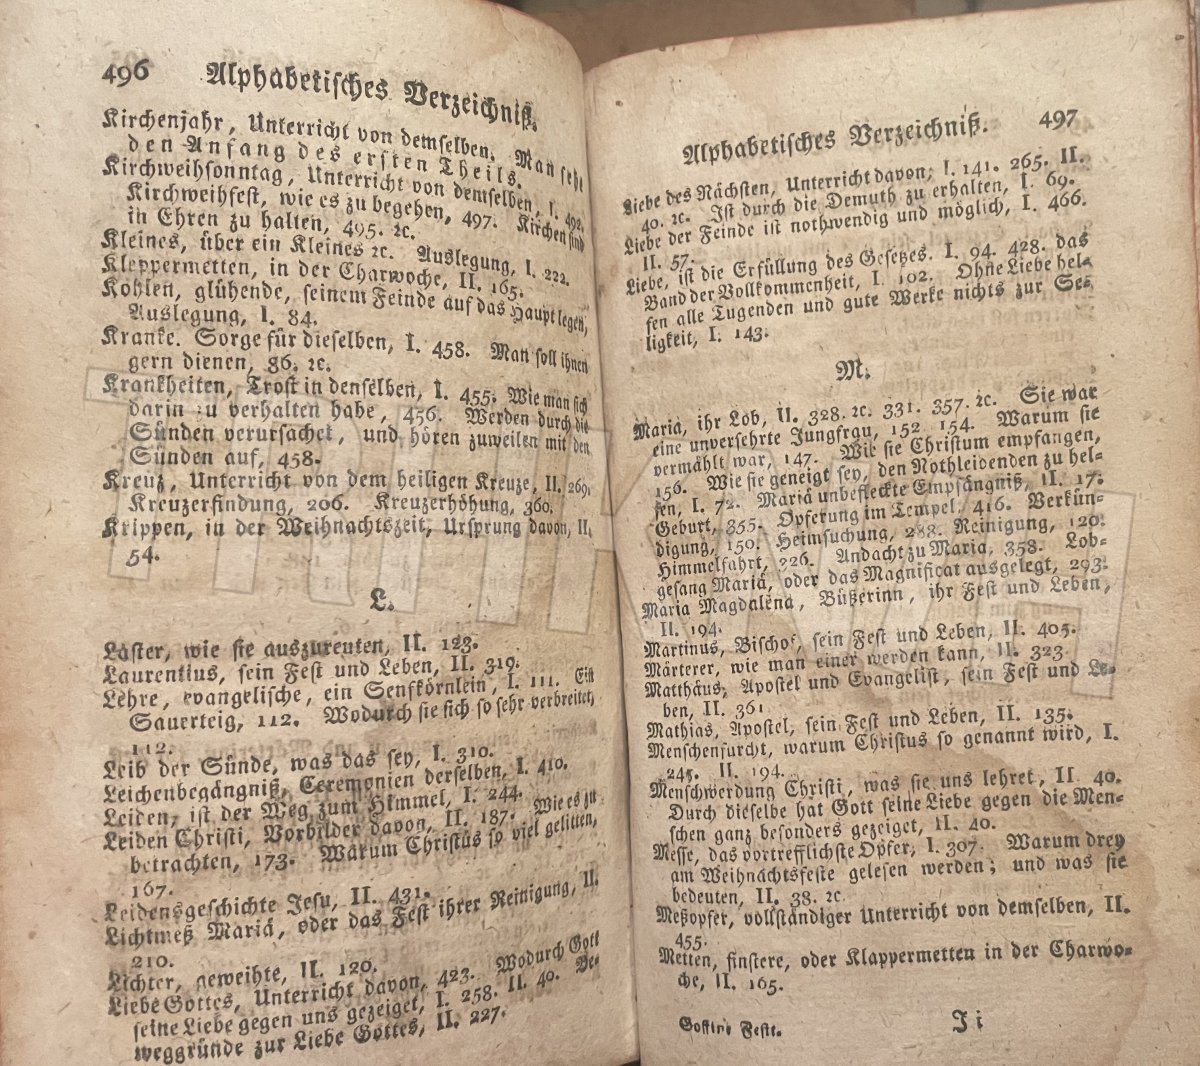 496 Alphabetisches Verzeichniß.
Kirchenjahr, Unterricht von demselben. Man sehe
den Anfang des ersten Theils.
Kirchweihsonntag, Unterricht von demselben, I. 492.
Kirchweihfest, wie es zu begehen, 497. Kirchen sind
in Ehren zu halten, 495. ꝛc.
Kleines, über ein Kleines ꝛc. Auslegung, I. 222.
Kleppermetten, in der Charwoche, II. 165.
Kohlen, glühende, seinem Feinde auf das Haupt legen,
Auslegung, I. 84.
Kranke. Sorge für dieselben, I. 458. Man soll ihnen
gern dienen, 86. ꝛc.
Krankheiten, Trost in denselben, I. 455. Wie man sich
darin zu verhalten habe, 456. Werden durch die
Sünden verursachet, und hören zuweilen mit den
Sünden auf, 458.
Kreuz, Unterricht von dem heiligen Kreuze, II. 269.
Kreuzerfindung, 206. Kreuzerhöhung, 360.
Krippen, in der Weihnachtszeit, Ursprung davon, II.
54.
L.
Laster, wie sie auszureuten, II. 123.
Laurentius, sein Fest und Leben, II. 319.
Lehre, evangelische, ein Senfkörnlein, I. 111. Ein
Sauerteig, 112. Wodurch sie sich so sehr verbreitet,
112.
Leib der Sünde, was das sey, I. 310.
Leichenbegängniß, Ceremonien derselben, I. 410.
Leiden, ist der Weg zum Himmel, I. 244.
Leiden Christi, Vorbilder davon, II. 187. Wie es zu
betrachten, 173. Warum Christus so viel gelitten,
167.
Leidensgeschichte Jesu, II. 431.
Lichtmeß Mariä, oder das Fest ihrer Reinigung, II.
210.
Lichter, geweihte, II. 120.
Liebe Gottes, Unterricht davon, 423. Wodurch Gott
seine Liebe gegen uns gezeiget, I. 258. II. 40. Be-
weggründe zur Liebe Gottes, II. 227.
Alphabetisches Verzeichniß. 497
Liebe des Nächsten, Unterricht davon, I. 141. 265. II.
40. ꝛc. Ist durch die Demuth zu erhalten, I. 69.
Liebe der Feinde ist nothwendig und möglich, I. 466.
II. 57.
Liebe, ist die Erfüllung des Gesetzes. I. 94. 428. das
Band der Vollkommenheit, I. 102. Ohne Liebe hel-
fen alle Tugenden und gute Werke nichts zur Se-
ligkeit, I. 143.
M.
Maria, ihr Lob, II. 328. ꝛc. 331. 357. ꝛc. Sie war
eine unversehrte Jungfrau, 152 154. Warum sie
vermählt war, 147. Wie sie Christum empfangen,
156. Wie sie geneigt sey, den Nothleidenden zu hel-
fen, I. 72. Mariä unbefleckte Empfängniß, II. 17.
Geburt, 355. Opferung im Tempel, 416. Verkün-
digung, 150. Heimsuchung, 288. Reinigung, 120.
Himmelfahrt, 326. Andacht zu Maria, 358. Lob-
gesang Mariä, oder das Magnificat ausgelegt, 293.
Maria Magdalena, Büßerinn, ihr Fest und Leben,
II. 194.
Martinus, Bischof, sein Fest und Leben, II. 405.
Märterer, wie man einer werden kann, II. 323
Matthäus, Apostel und Evangelist, sein Fest und Le-
ben, II. 361
Mathias, Apostel, sein Fest und Leben, II. 135.
Menschenfurcht, warum Christus so genannt wird, I.
245. II. 194.
Menschwerdung Christi, was sie uns lehret, II 40.
Durch dieselbe hat Gott seine Liebe gegen die Men-
schen ganz besonders gezeiget, II. 40.
Messe, das vortrefflichste Opfer, I. 307. Warum drey
am Weihnachtsfeste gelesen werden; und was sie
bedeuten, II. 38. ꝛc
Meßopfer, vollständiger Unterricht von demselben, II.
455.
Metten, finstere, oder Klappermetten in der Charwo-
che, II. 165.
Goffine Festt. Ii